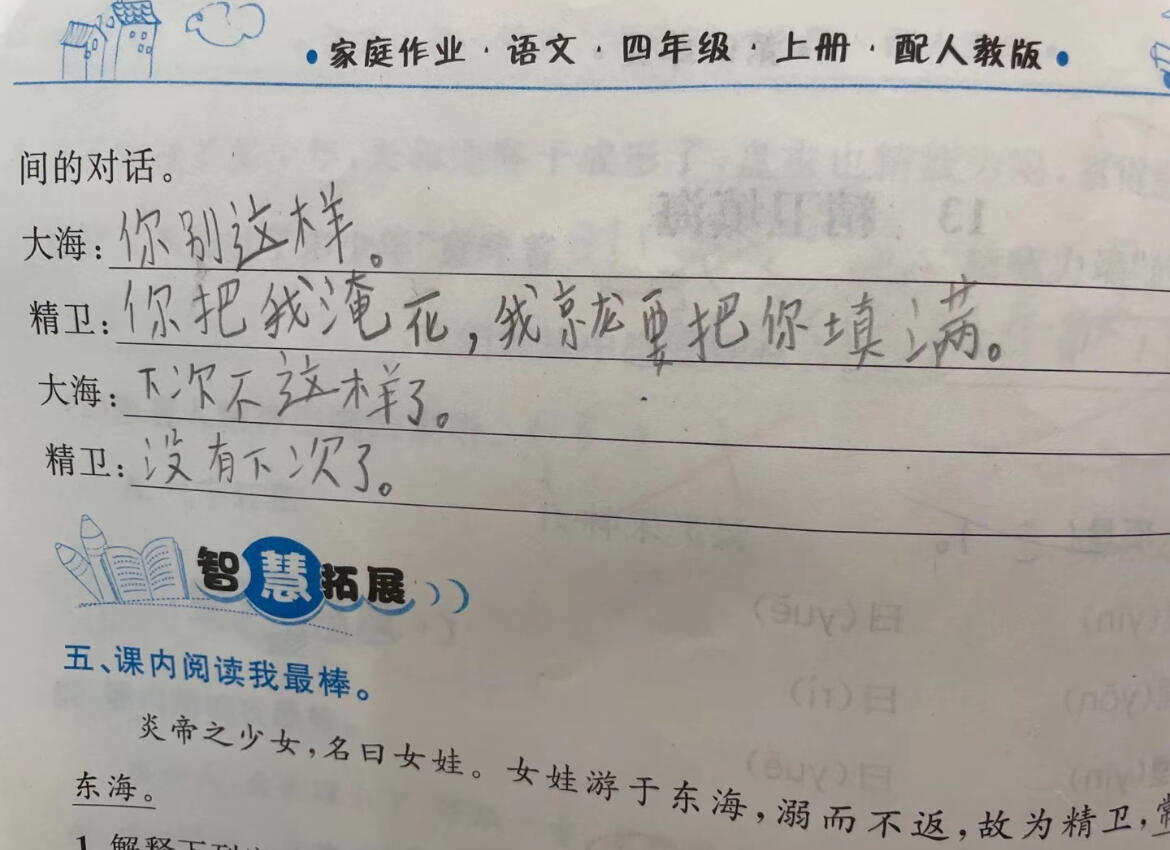 •家庭作业·语文·四年级·上册·配人教版•
间的对话。
大海：你别这样。
精卫：你把我淹死，我就要把你填满。
大海：下次不这样了。
精卫：没有下次了。
智慧拓展
五、课内阅读我最棒。
炎帝之少女，名曰女娃。女娃游于东海，溺而不返，故为精卫，常
东海。
1.解释下列
13 精卫填海
曰(yuē)
日(rì)
曰(yuē)